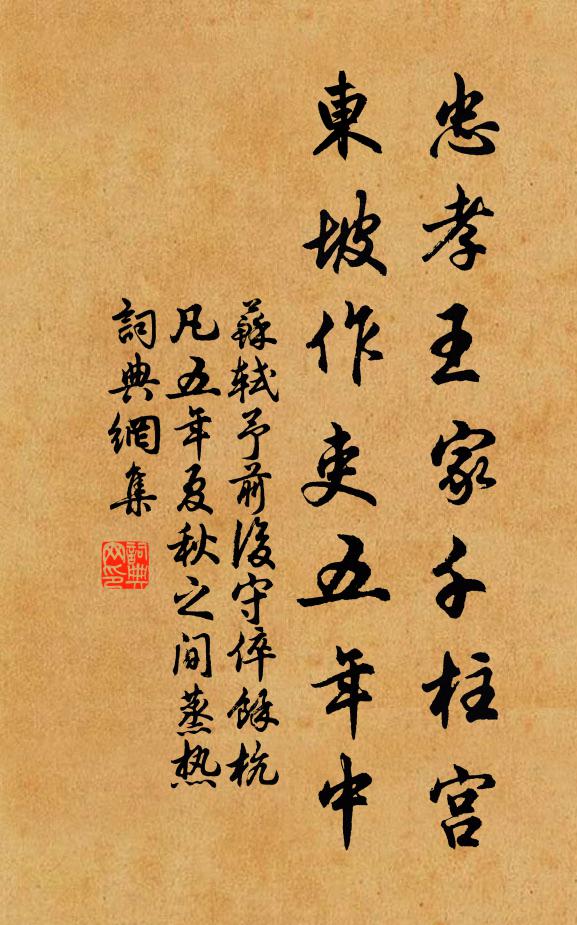 忠孝王家千柱宫
東坡作吏五年中
蘇軾予前後守倅餘杭
凡五年夏秋之间蒸热
詞典網集
詞典网印